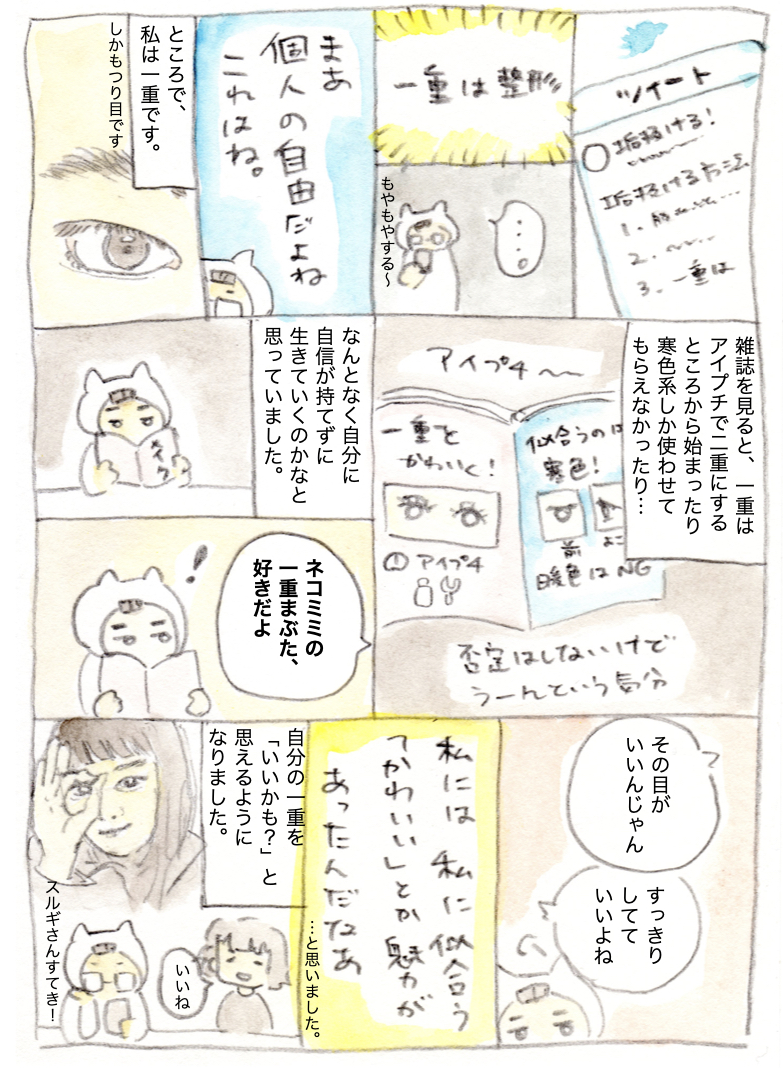 ツイート
垢抜ける！
垢抜ける方法
1.
2.
3. 一重は
一重は整形
・・・。
もやもやする〜
まあ
個人の自由だよね
これはね。
ところで、
私は一重です。
しかもつり目です
雑誌を見ると、一重は
アイプチで二重にする
ところから始まったり
寒色系しか使わせて
もらえなかったり…
アイプチ〜〜
一重を
かわいく！
①アイプチ
似合うのは
寒色！
前
よこ
暖色はNG
否定はしないけど
うーんという気分
なんとなく自分に
自信が持てずに
生きていくのかなと
思っていました。
メイク
ネコミミの
一重まぶた、
好きだよ
！
その目が
いいんじゃん
すっきり
してて
いいよね
私には私に似合う
「かわいい」とか魅力が
あったんだなあ
…と思いました。
自分の一重を
「いいかも？」と
思えるように
なりました。
いいね
スルギさんすてき！